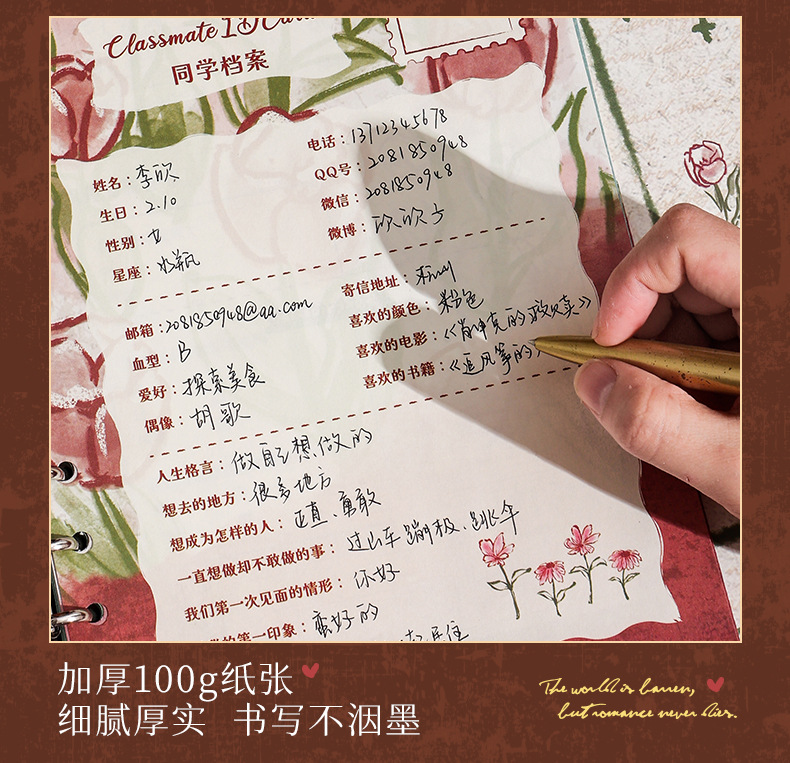 Classmate ID Card
同学档案
姓名：李欣
生日：2.10
性别：女
星座：水瓶
电话：13712345678
QQ号：2081850948
微信：2081850948
微博：欣欣子
邮箱：2081850948@qq.com
血型：B
爱好：探索美食
偶像：胡歌
寄信地址：
喜欢的颜色：粉色
喜欢的电影：《肖申克的救赎》
喜欢的书籍：《追风筝的
人生格言：做自己想做的
想去的地方：很多地方
想成为怎样的人：正直、勇敢
一直想做却不敢做的事：过山车 蹦极、跳伞
我们第一次见面的情形：你好
的第一印象：蛮好的
居住
加厚100g纸张
细腻厚实 书写不洇墨
The world is barren,
but romance never dies.